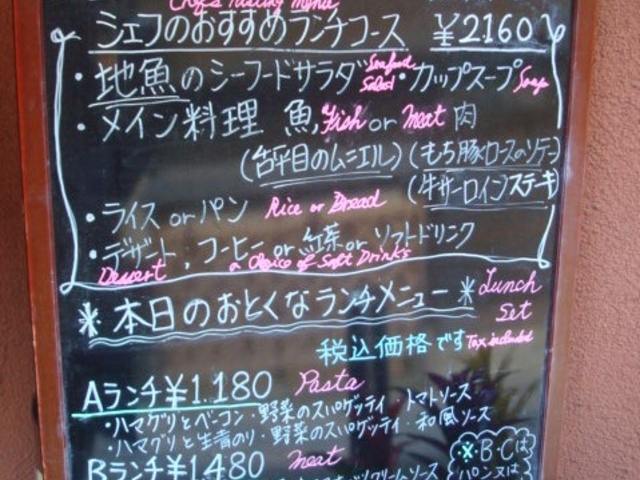 Chef's Tasting Menu
シェフのおすすめランチコース ¥2160
・地魚のシーフードサラダ Seafood Salad ・カップスープ Soup
・メイン料理 魚 Fish or Meat 肉
(舌平目のムニエル) (もち豚ロースのソテー)
(牛サーロインステーキ)
・ライス or パン Rice or Bread
・デザート、コーヒー or 紅茶 or ソフトドリンク
Dessert a Choice of Soft Drinks
*本日のおとくなランチメニュー* Lunch Set
税込価格です Tax included
Aランチ ¥1.180 Pasta
・ハマグリとベーコン・野菜のスパゲッティ・トマトソース
・ハマグリと生青のり・野菜のスパゲッティ・和風ソース
Bランチ ¥1480 Meat
※B・Cは
パン又は
クリームソース